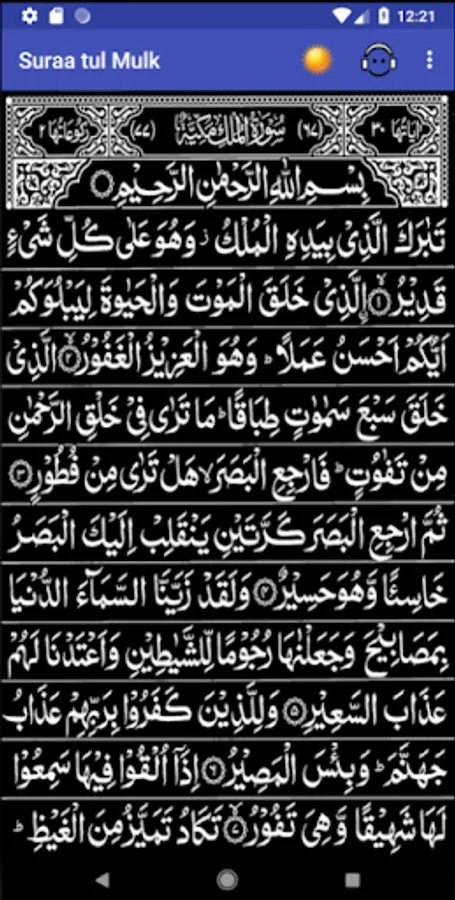 12:21
Suraa tul Mulk
اٰيَاتُهَا ٣٠ (٦٧) سُوْرَةُ الْمُلْكِ مَكِّيَّةٌ (٧٧) رُكُوْعَاتُهَا ٢
بِسْمِ اللّٰهِ الرَّحْمٰنِ الرَّحِيْمِ
تَبٰرَكَ الَّذِىْ بِيَدِهِ الْمُلْكُ ز وَهُوَ عَلٰى كُلِّ شَىْءٍ
قَدِيْرُ ۙ﴿١﴾ اِۨلَّذِىْ خَلَقَ الْمَوْتَ وَالْحَيٰوةَ لِيَبْلُوَكُمْ
اَيُّكُمْ اَحْسَنُ عَمَلًا ؕ وَهُوَ الْعَزِيْزُ الْغَفُوْرُ ۙ﴿٢﴾ الَّذِىْ
خَلَقَ سَبْعَ سَمٰوٰتٍ طِبَاقًا ؕ مَا تَرٰى فِىْ خَلْقِ الرَّحْمٰنِ
مِنْ تَفٰوُتٍ ؕ فَارْجِعِ الْبَصَرَ ۙ هَلْ تَرٰى مِنْ فُطُوْرٍ ﴿٣﴾
ثُمَّ ارْجِعِ الْبَصَرَ كَرَّتَيْنِ يَنْقَلِبْ اِلَيْكَ الْبَصَرُ
خَاسِئًا وَّهُوَ حَسِيْرٌ ﴿٤﴾ وَلَقَدْ زَيَّنَّا السَّمَآءَ الدُّنْيَا
بِمَصَابِيْحَ وَجَعَلْنٰهَا رُجُوْمًا لِّلشَّيٰطِيْنِ وَاَعْتَدْنَا لَهُمْ
عَذَابَ السَّعِيْرِ ﴿٥﴾ وَلِلَّذِيْنَ كَفَرُوْا بِرَبِّهِمْ عَذَابُ
جَهَنَّمَ ؕ وَبِئْسَ الْمَصِيْرُ ﴿٦﴾ اِذَآ اُلْقُوْا فِيْهَا سَمِعُوْا
لَهَا شَهِيْقًا وَّهِىَ تَفُوْرُ ۙ﴿٧﴾ تَكَادُ تَمَيَّزُ مِنَ الْغَيْظِ ؕ